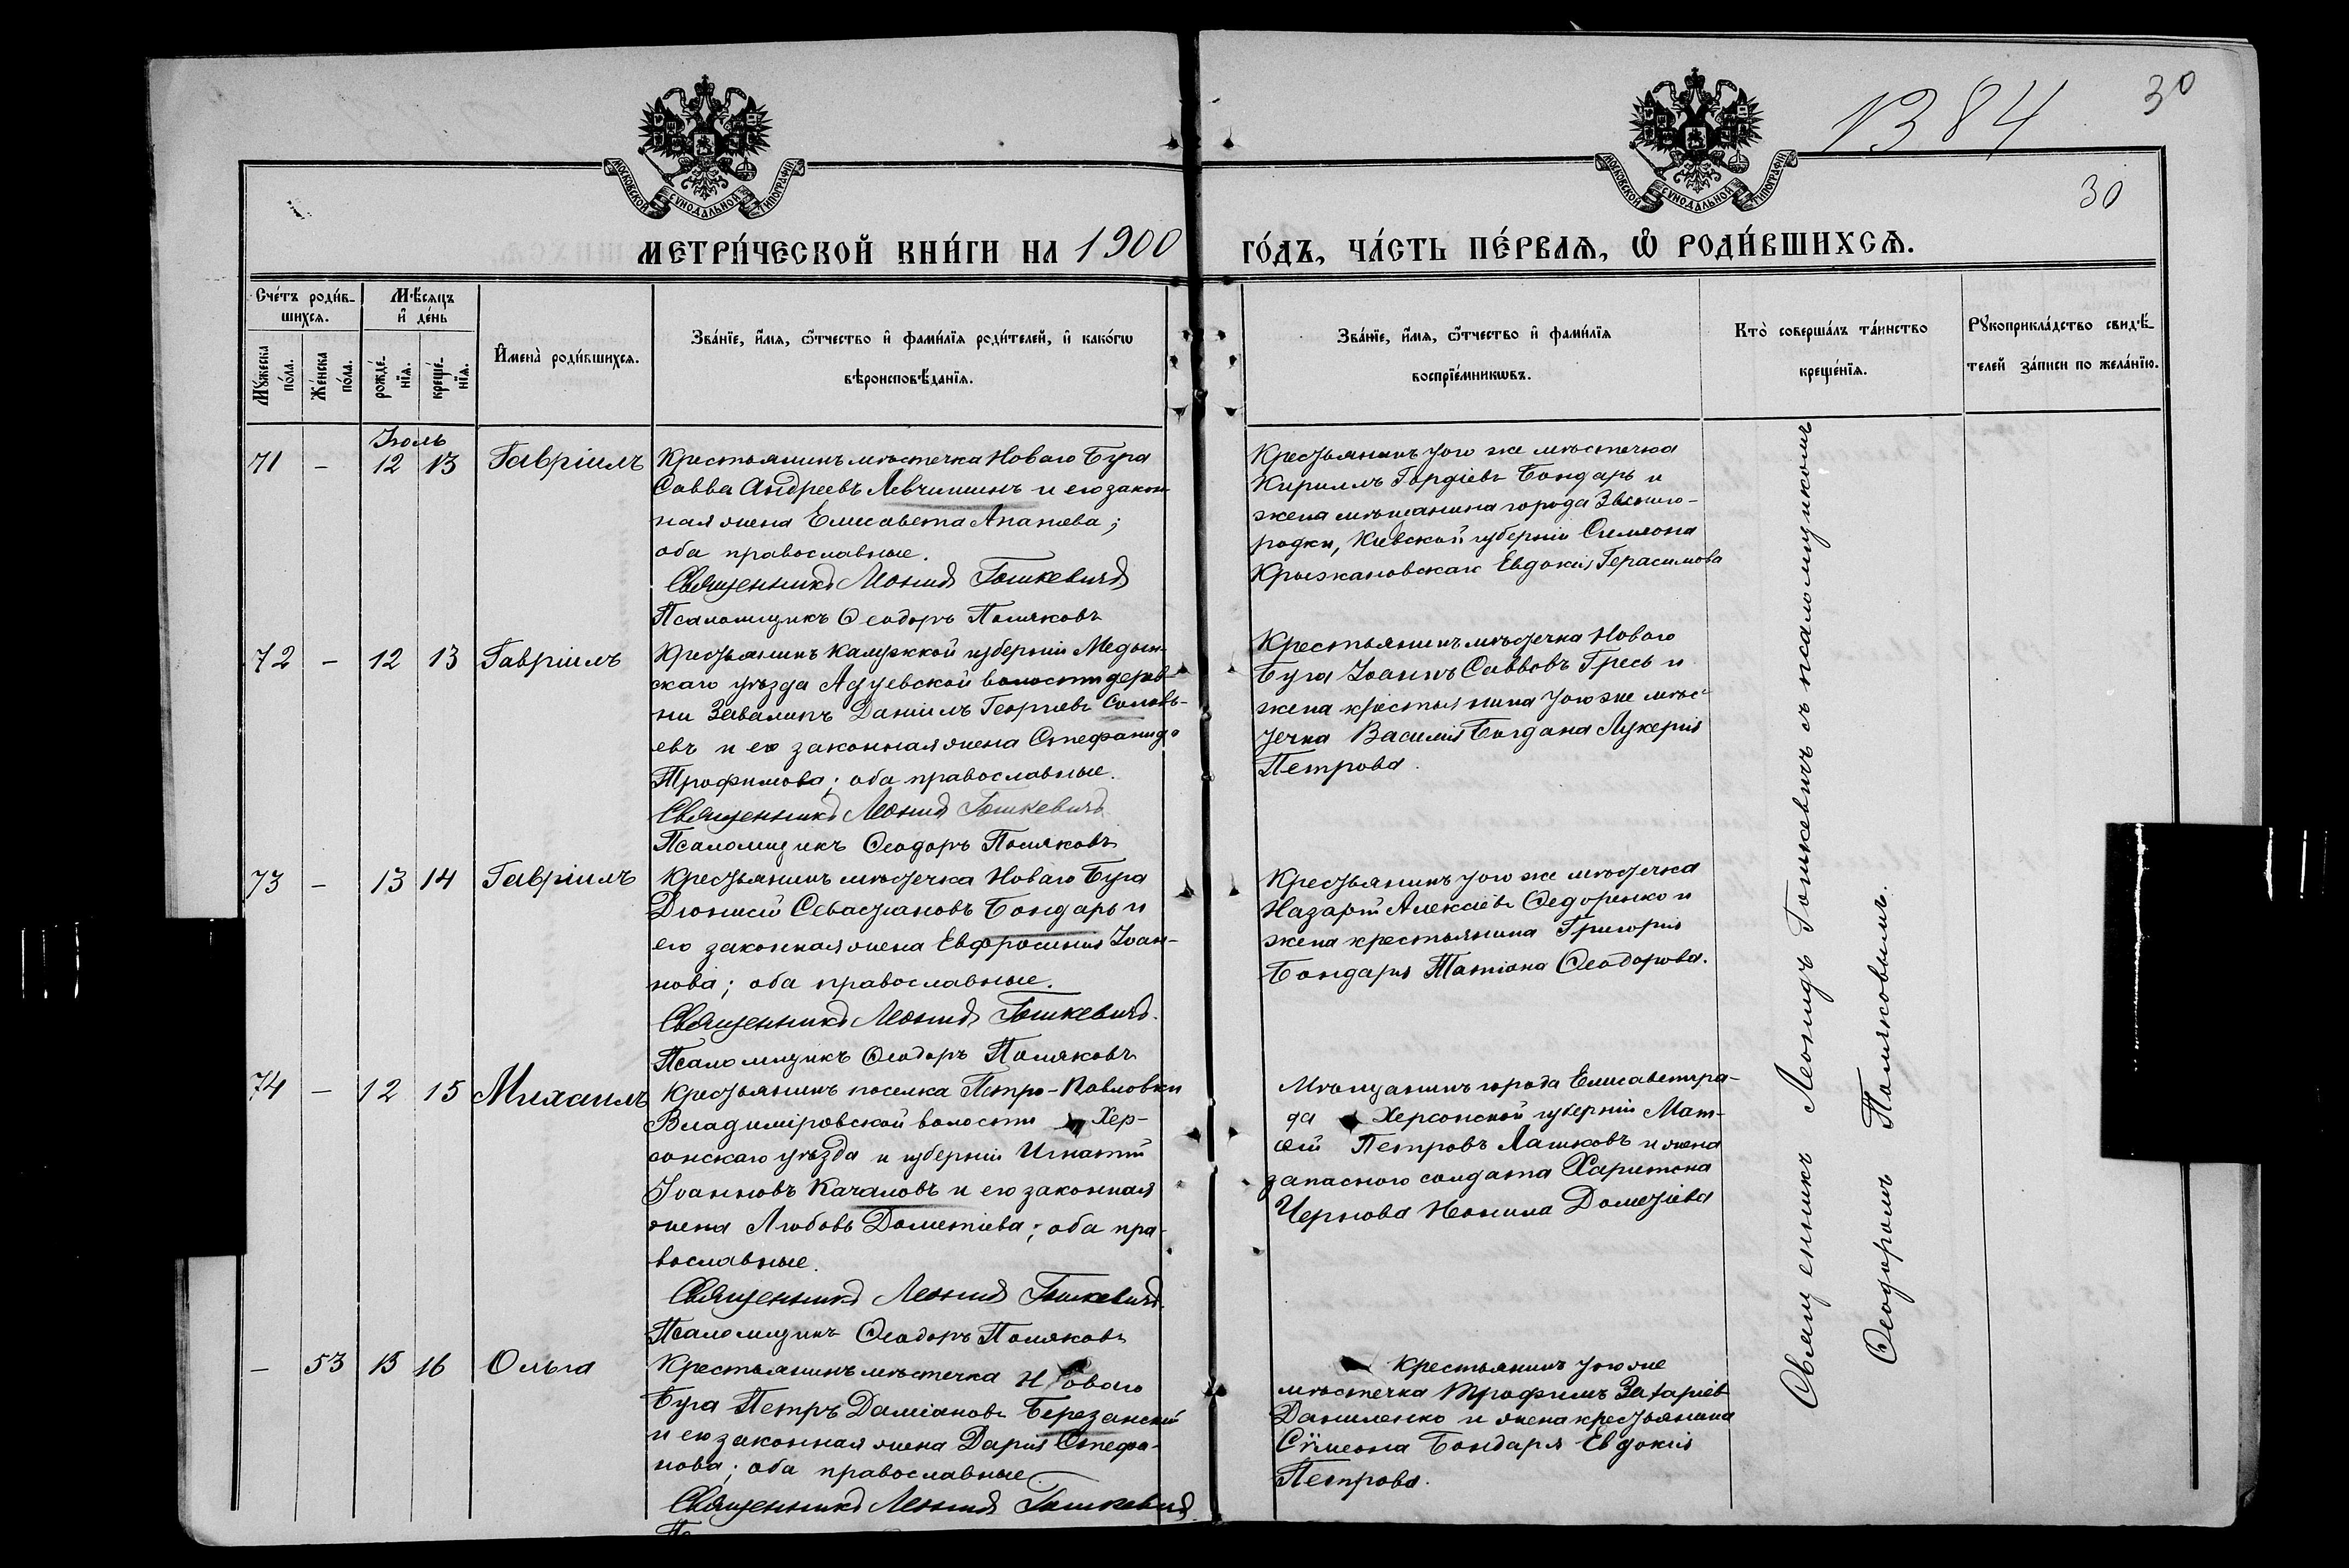 1384
30
30
МОСКОВСКОЙ СѴНОДАЛЬНОЙ ТИПОГРАФІИ
МОСКОВСКОЙ СѴНОДАЛЬНОЙ ТИПОГРАФІИ
МЕТРИ́ЧЕСКОЙ КНИ́ГИ НА 1900 ГО́ДЪ, ЧА́СТЬ ПЕ́РВАѦ, Ѡ҆ РОДИ́ВШИХСѦ.
Сче́тъ роди́в-
шихсѧ.
Мꙋ́жеска
по́ла.
Же́нска
по́ла.
Мѣ́сѧцъ
и҆ де́нь
рожде́-
нїѧ.
креще́-
нїѧ.
И҆мена̀ роди́вшихсѧ.
Зва́нїе, и҆́мѧ, ѻ҆́тчество и҆ фами́лїѧ роди́телей, и҆ како́гѡ
вѣроисповѣ́данїѧ.
Зва́нїе, и҆́мѧ, ѻ҆́тчество и҆ фами́лїѧ
воспрїе́мникѡвъ.
Кто̀ соверша́лъ та́инство
креще́нїѧ.
Рꙋкоприкла́дство свидѣ́-
телей за́писи по жела́нїю.
Іюль
71 - 12 13 Гавріилъ
Крестьянинъ мѣстечка Новаго Буга
Савва Андреевъ Левчишинъ и его закон-
ная жена Елисавета Ананьева;
оба православные.
Священникъ Леонидъ Гошкевичъ
Псаломщикъ Ѳеодоръ Поляковъ
Крестьянинъ того же мѣстечка
Кириллъ Гордіевъ Бондарь и
жена мѣщанина города Звениго-
родки, Кіевской губерніи Симеона
Крыжановскаго Евдокія Герасимова
72 - 12 13 Гавріилъ
Крестьянинъ Калужской губерніи Медын-
скаго уѣзда Адуевской волости дерев-
ни Завалинъ Даніилъ Георгіевъ Соловь-
евъ и его законная жена Стефанида
Трофимова; оба православные.
Священникъ Леонидъ Гошкевичъ
Псаломщикъ Ѳеодоръ Поляковъ
Крестьянинъ мѣстечка Новаго
Буга Іоаннъ Саввовъ Гресь и
жена крестьянина того же мѣс-
течка Василія Богдана Лукерія
Петрова.
73 - 13 14 Гавріилъ
Крестьянинъ мѣстечка Новаго Буга
Діонисій Севастіановъ Бондарь и
его законная жена Евфросинія Іоан-
нова; оба православные.
Священникъ Леонидъ Гошкевичъ.
Псаломщикъ Ѳеодоръ Поляковъ
Крестьянинъ того же мѣстечка
Назарій Алексіевъ Ѳедоренко и
жена крестьянина Григорія
Бондаря Татіана Ѳеодорова.
74 - 12 15 Михаилъ
Крестьянинъ поселка Петро-Павловки
Владиміровской волости Хер-
сонскаго уѣзда и губерніи Игнатій
Іоанновъ Качаловъ и его законная
жена Любовь Дометіева; оба пра-
вославные.
Священникъ Леонидъ Гошкевичъ.
Псаломщикъ Ѳеодоръ Поляковъ
Мѣщанинъ города Елисаветгра-
да Херсонской губерніи Мат-
ѳій Петровъ Лашковъ и жена
запасного солдата Харитона
Чернова Неонила Дометіева
- 53 15 16 Ольга
Крестьянинъ мѣстечка Новаго
Буга Петръ Даміановъ Березанскій
и его законная жена Дарія Стефа-
нова; оба православные.
Священникъ Леонидъ Гошкевичъ.
Крестьянинъ того же
мѣстечка Трофимъ Захаріевъ
Даниленко и жена крестьянина
Сѵмеона Бондаря Евдокія
Петрова.
Священникъ Леонидъ Гошкевичъ съ псаломщикомъ
Ѳеодоромъ Поляковымъ.